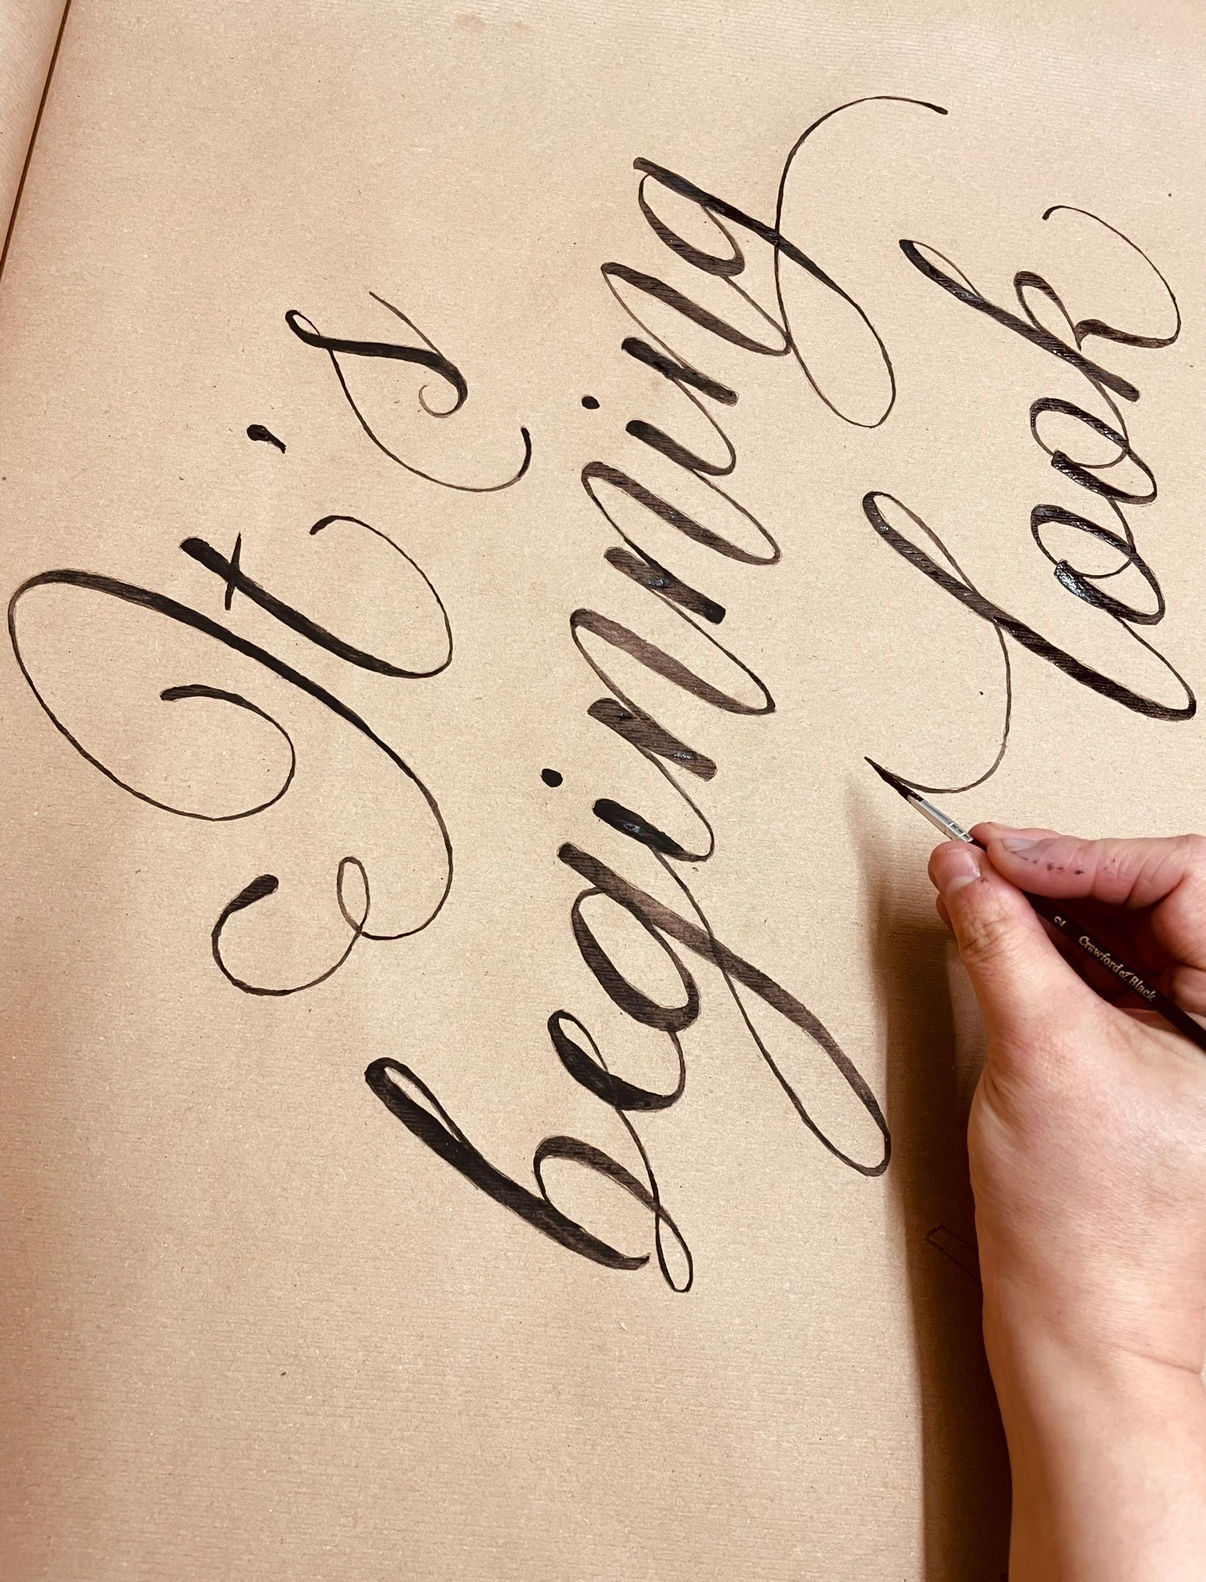 It's
beginning
look
2 Crawford & Black